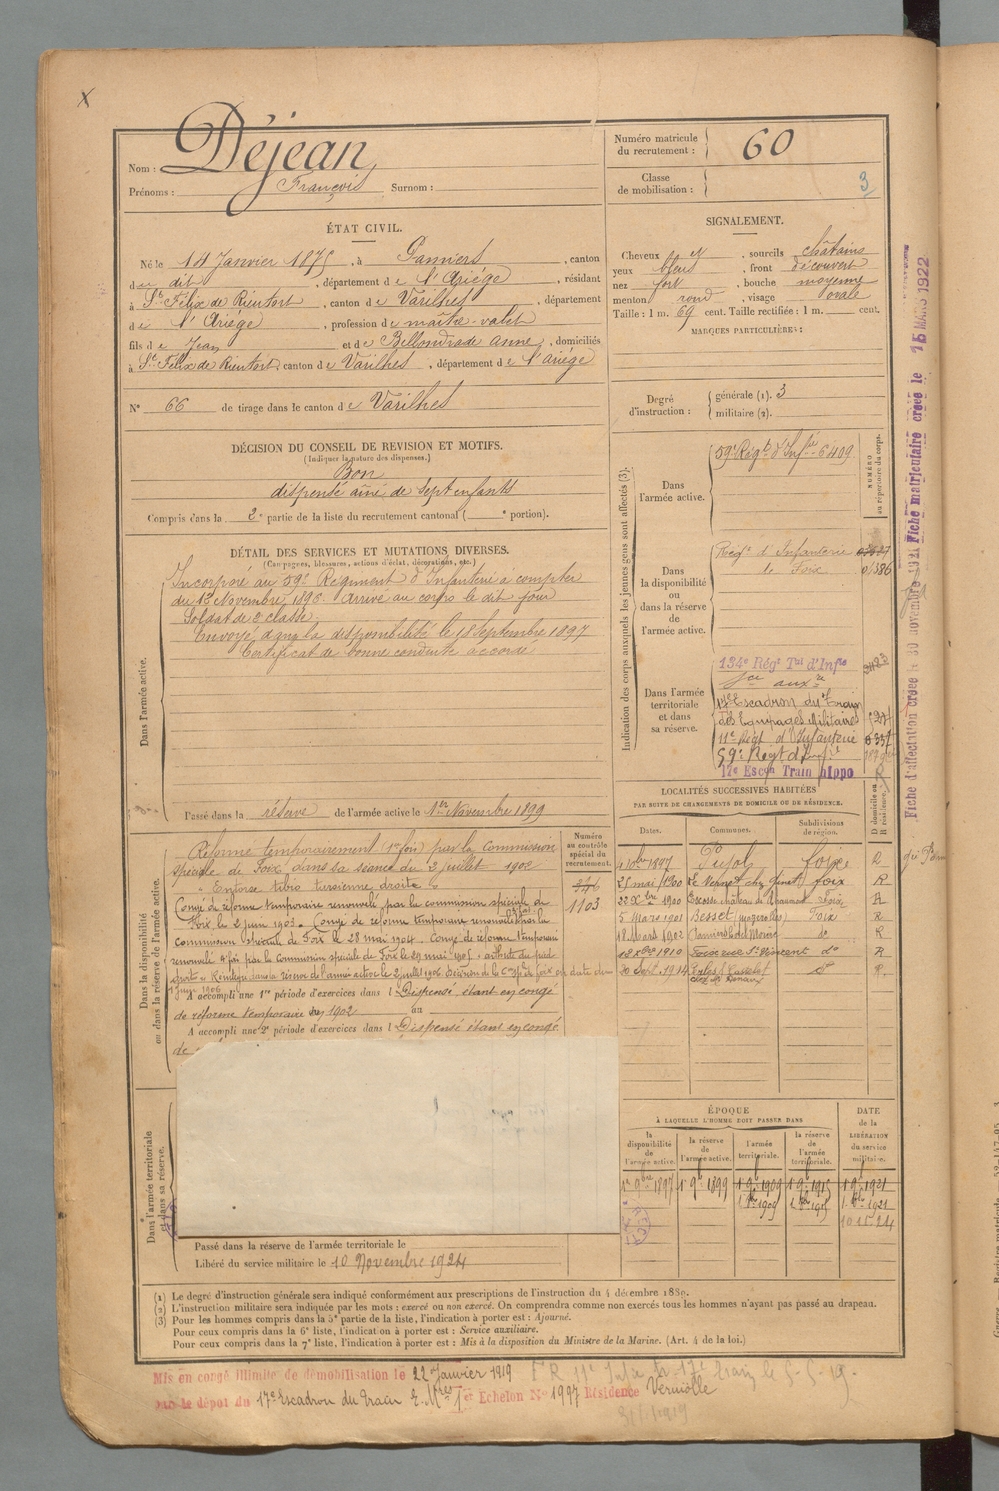 X
Nom : Déjean
Prénoms : François Surnom :
Numéro matricule du recrutement : 60
Classe de mobilisation : 3
ÉTAT CIVIL.
Né le 14 Janvier 1875, à Pamiers, canton
de dit, département de l'Ariége, résidant
à St Félix de Rieutort, canton de Varilhes, département
de l'Ariége, profession de maître-valet
fils de Jean et de Bellondrade Anne, domiciliés
à St Félix de Rieutort, canton de Varilhes, département de l'Ariége
N° 66 de tirage dans le canton de Varilhes
SIGNALEMENT.
Cheveux et, sourcils châtains
yeux bleus, front découvert
nez fort, bouche moyenne
menton rond, visage ovale
Taille : 1 m. 69 cent. Taille rectifiée : 1 m. cent.
MARQUES PARTICULIÈRES :
Degré d'instruction : générale (1). 3
militaire (2).
DÉCISION DU CONSEIL DE REVISION ET MOTIFS.
(Indiquer la nature des dispenses.)
Bon
dispensé aîné de sept enfants
Compris dans la 2e partie de la liste du recrutement cantonal ( e portion).
DÉTAIL DES SERVICES ET MUTATIONS DIVERSES.
(Campagnes, blessures, actions d'éclat, décorations, etc.)
Dans l'armée active.
Incorporé au 59e Régiment d'Infanterie à compter
du 12 Novembre 1896. Arrivé au corps le dit jour
Soldat de 2e classe.
Envoyé dans la disponibilité le 18 Septembre 1897
Certificat de bonne conduite accordé
Passé dans la réserve de l'armée active le 1er Novembre 1899
Indication des corps auxquels les jeunes gens sont affectés (3).
NUMÉRO au répertoire du corps.
Dans l'armée active.
59e Régt d'Infie 6409
Dans la disponibilité ou dans la réserve de l'armée active.
Régt d'Infanterie
de Foix 01386
Dans l'armée territoriale et dans sa réserve.
134e Régt Tal d'Infie
Sce auxre
17e Escadron du Train
des Equipages Militaires
11e Régt d'Infanterie
59e Regt d'Infie
17e Escon Train hippo
LOCALITÉS SUCCESSIVES HABITÉES
PAR SUITE DE CHANGEMENTS DE DOMICILE OU DE RÉSIDENCE.
Dates. Communes. Subdivisions de région. D domicile ou R résidence.
1897 Pujols Foix D
25 mai 1900 Le Vernet chez foix R
22 Xbre 1900 Ecosse château de Foix R
5 Mars 1901 Besset Foix R
18 Mars 1902 Pamiers do R
1910 do R
30 Sept. 1914 R
Dans la disponibilité ou dans la réserve de l'armée active.
Numéro au contrôle spécial du recrutement.
376
1103
Réformé temporairement (1re fois) par la Commission
spéciale de Foix dans sa séance du 2 juillet 1902
"Entorse tibio tarsienne droite"
Congé de réforme temporaire renouvelé par la commission spéciale de
Foix le 2 juin 1903. Congé de réforme temporaire renouvelé par la
commission spéciale de Foix le 28 mai 1904. Congé de réforme temporaire
renouvelé 4e fois par la Commission spéciale de Foix le 29 mai 1905
en date du
1 Juin 1906
A accompli une 1re période d'exercices dans l Dispensé étant en congé
de réforme temporaire en 1902 au
A accompli une 2e période d'exercices dans l Dispensé étant en congé
de
Dans l'armée territoriale et dans sa réserve.
Passé dans la réserve de l'armée territoriale le
Libéré du service militaire le 10 Novembre 1924
ÉPOQUE
À LAQUELLE L'HOMME DOIT PASSER DANS
la disponibilité de l'armée active. la réserve de l'armée active. l'armée territoriale. la réserve de l'armée territoriale. DATE de la LIBÉRATION du service militaire.
1er 9bre 1897 1er 9bre 1899 1er 9bre 1909 1er 9bre 1915 1er 9bre 1921
1909 1915 1921
(1) Le degré d'instruction générale sera indiqué conformément aux prescriptions de l'instruction du 4 décembre 1889.
(2) L'instruction militaire sera indiquée par les mots : exercé ou non exercé. On comprendra comme non exercés tous les hommes n'ayant pas passé au drapeau.
(3) Pour les hommes compris dans la 5e partie de la liste, l'indication à porter est : Ajourné.
Pour ceux compris dans la 6e liste, l'indication à porter est : Service auxiliaire.
Pour ceux compris dans la 7e liste, l'indication à porter est : Mis à la disposition du Ministre de la Marine. (Art. 4 de la loi.)
Mis en congé illimité de démobilisation le 22 Janvier 1919
par le dépôt du 17e Escadron du Train 1er Echelon N° 1997 Résidence Verniolle
Fiche d'affectation créée le 30 novembre 1921 Fiche matriculaire créée le 15 MARS 1922